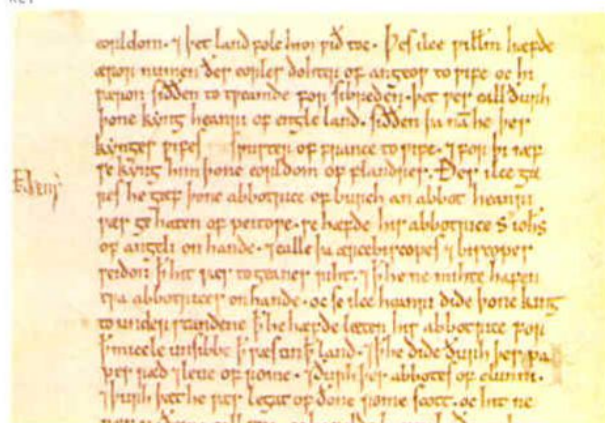 eorldom. ⁊ þet land folc him ƿið toc. Þes ilce ƿillm̄ hæfde
æror numen ðes eorles dohter of angeoƿ to ƿife. oc hi
ƿæron siððen to tƿeamde for sibreden. þet ƿes eall ðurh
þone kyng heanri of engle land. siððen þa nā he þes
kynges ƿifes sƿuster of france to ƿife. ⁊ for þi iæf
se kyng him þone eorldom of flandres. Ðes ilce gæ
res he gæf þone abbotrice of burch an abbot heanri
ƿes ge haten of peitoƿe. se hæfde his abbotrice S. ioh̄s
of angeli on hande. ⁊ ealle þa ærcebiscopes ⁊ biscopes
seidon ꝥ hit ƿes togeanes riht. ⁊ ꝥ he ne mihte hafen
tƿa abbotrices on hande. oc se ilce heanri dide þone king
to understandene ꝥ he hæfde læten his abbotrice for
ꝥ micele unsibbe ꝥ ƿæs on ꝥ land. ⁊ ꝥ he dide ðurh þes pa
pes ræd ⁊ leue of rome. ⁊ ðurh þes abbotes of clunni.
⁊ þurh þet he ƿæs legat of ðone rome scott. oc hit ne